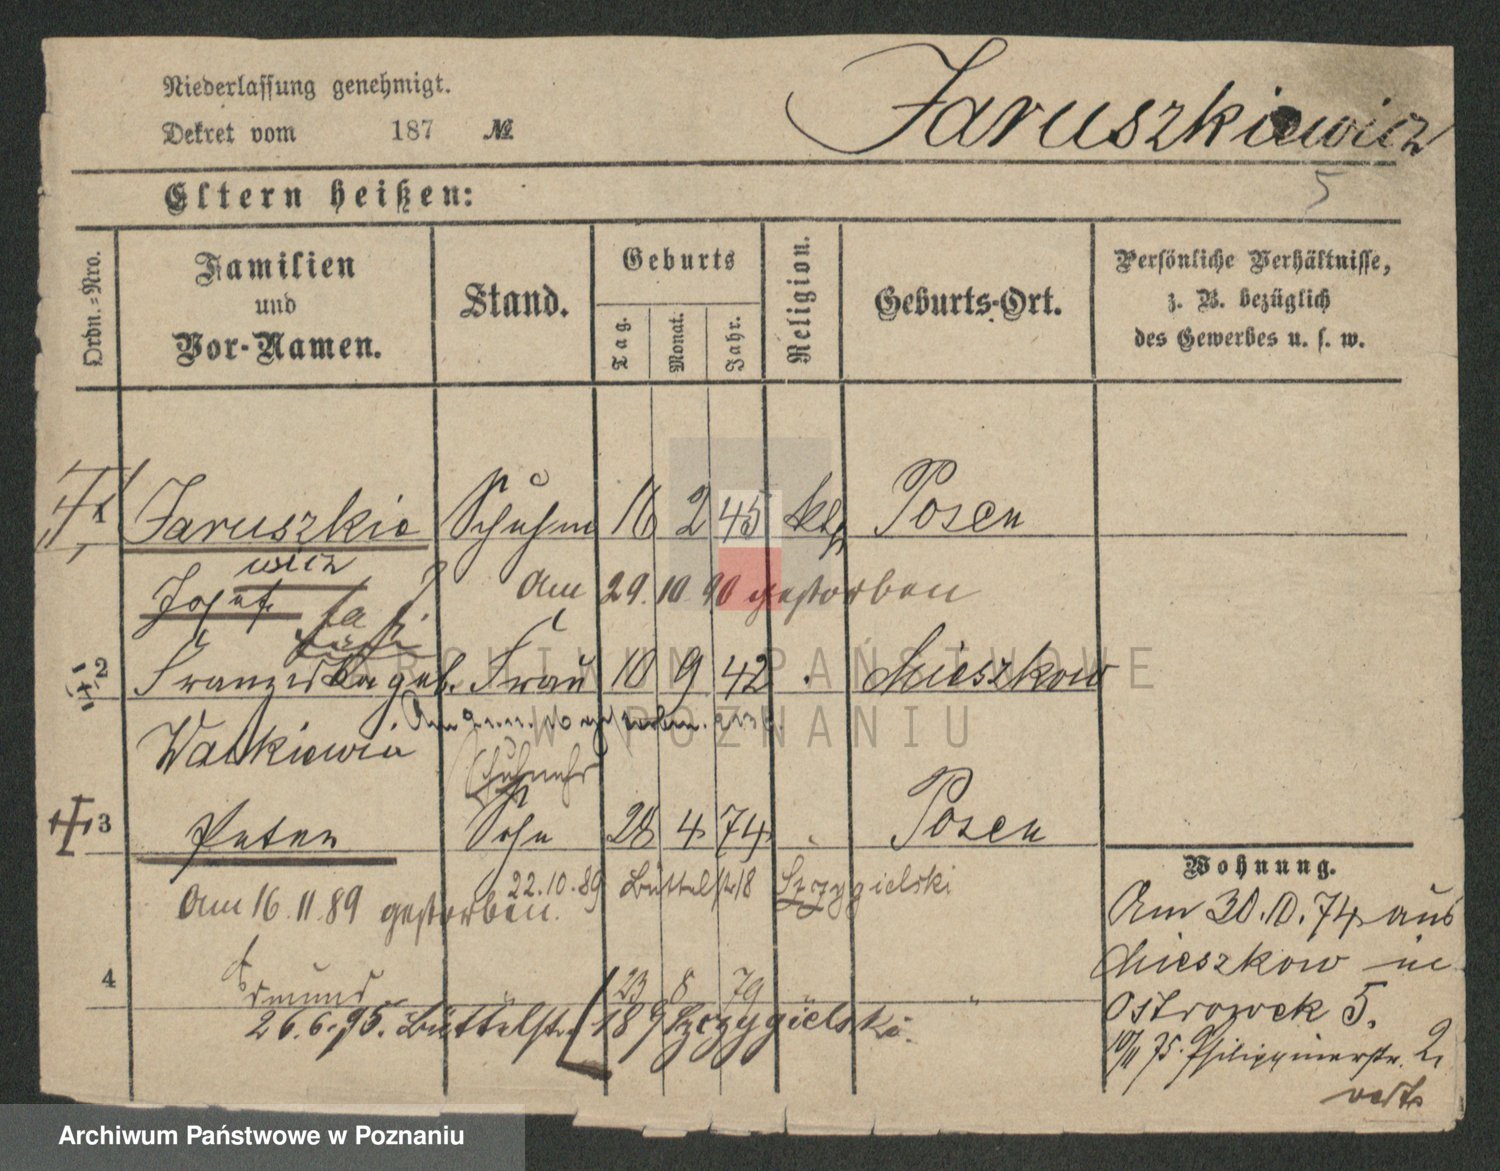 Niederlassung genehmigt.
Dekret vom 187 №
Jaruszkiewicz
5
Eltern heißen:
Ordn.=Nro.
Familien
und
Vor-Namen.
Stand.
Geburts
Tag.
Monat.
Jahr.
Religion.
Geburts-Ort.
Persönliche Verhältnisse,
z. B. bezüglich
des Gewerbes u. s. w.
1 Jaruszkie Schuhm 16 2 45 kth Posen
wicz
Josef Am 29.10.90 gestorben
2 Franziska geb. Frau 10 9 42 Mieszkow
Am gestorben.
3 Peter Sohn 28 4 74 Posen
Wohnung.
22.10.89 Büttelstr 18 Szczygielski
Am 16.11.89 gestorben.
Am 30.10.74 aus
Mieszkow in
4 Edmund 23 8 79 "
Ostrowek 5.
26.6.95. Büttelstr. 18 Szczygielski.
10/11 75. Philippinerstr. 2
ARCHIWUM PAŃSTWOWE
W POZNANIU
Archiwum Państwowe w Poznaniu